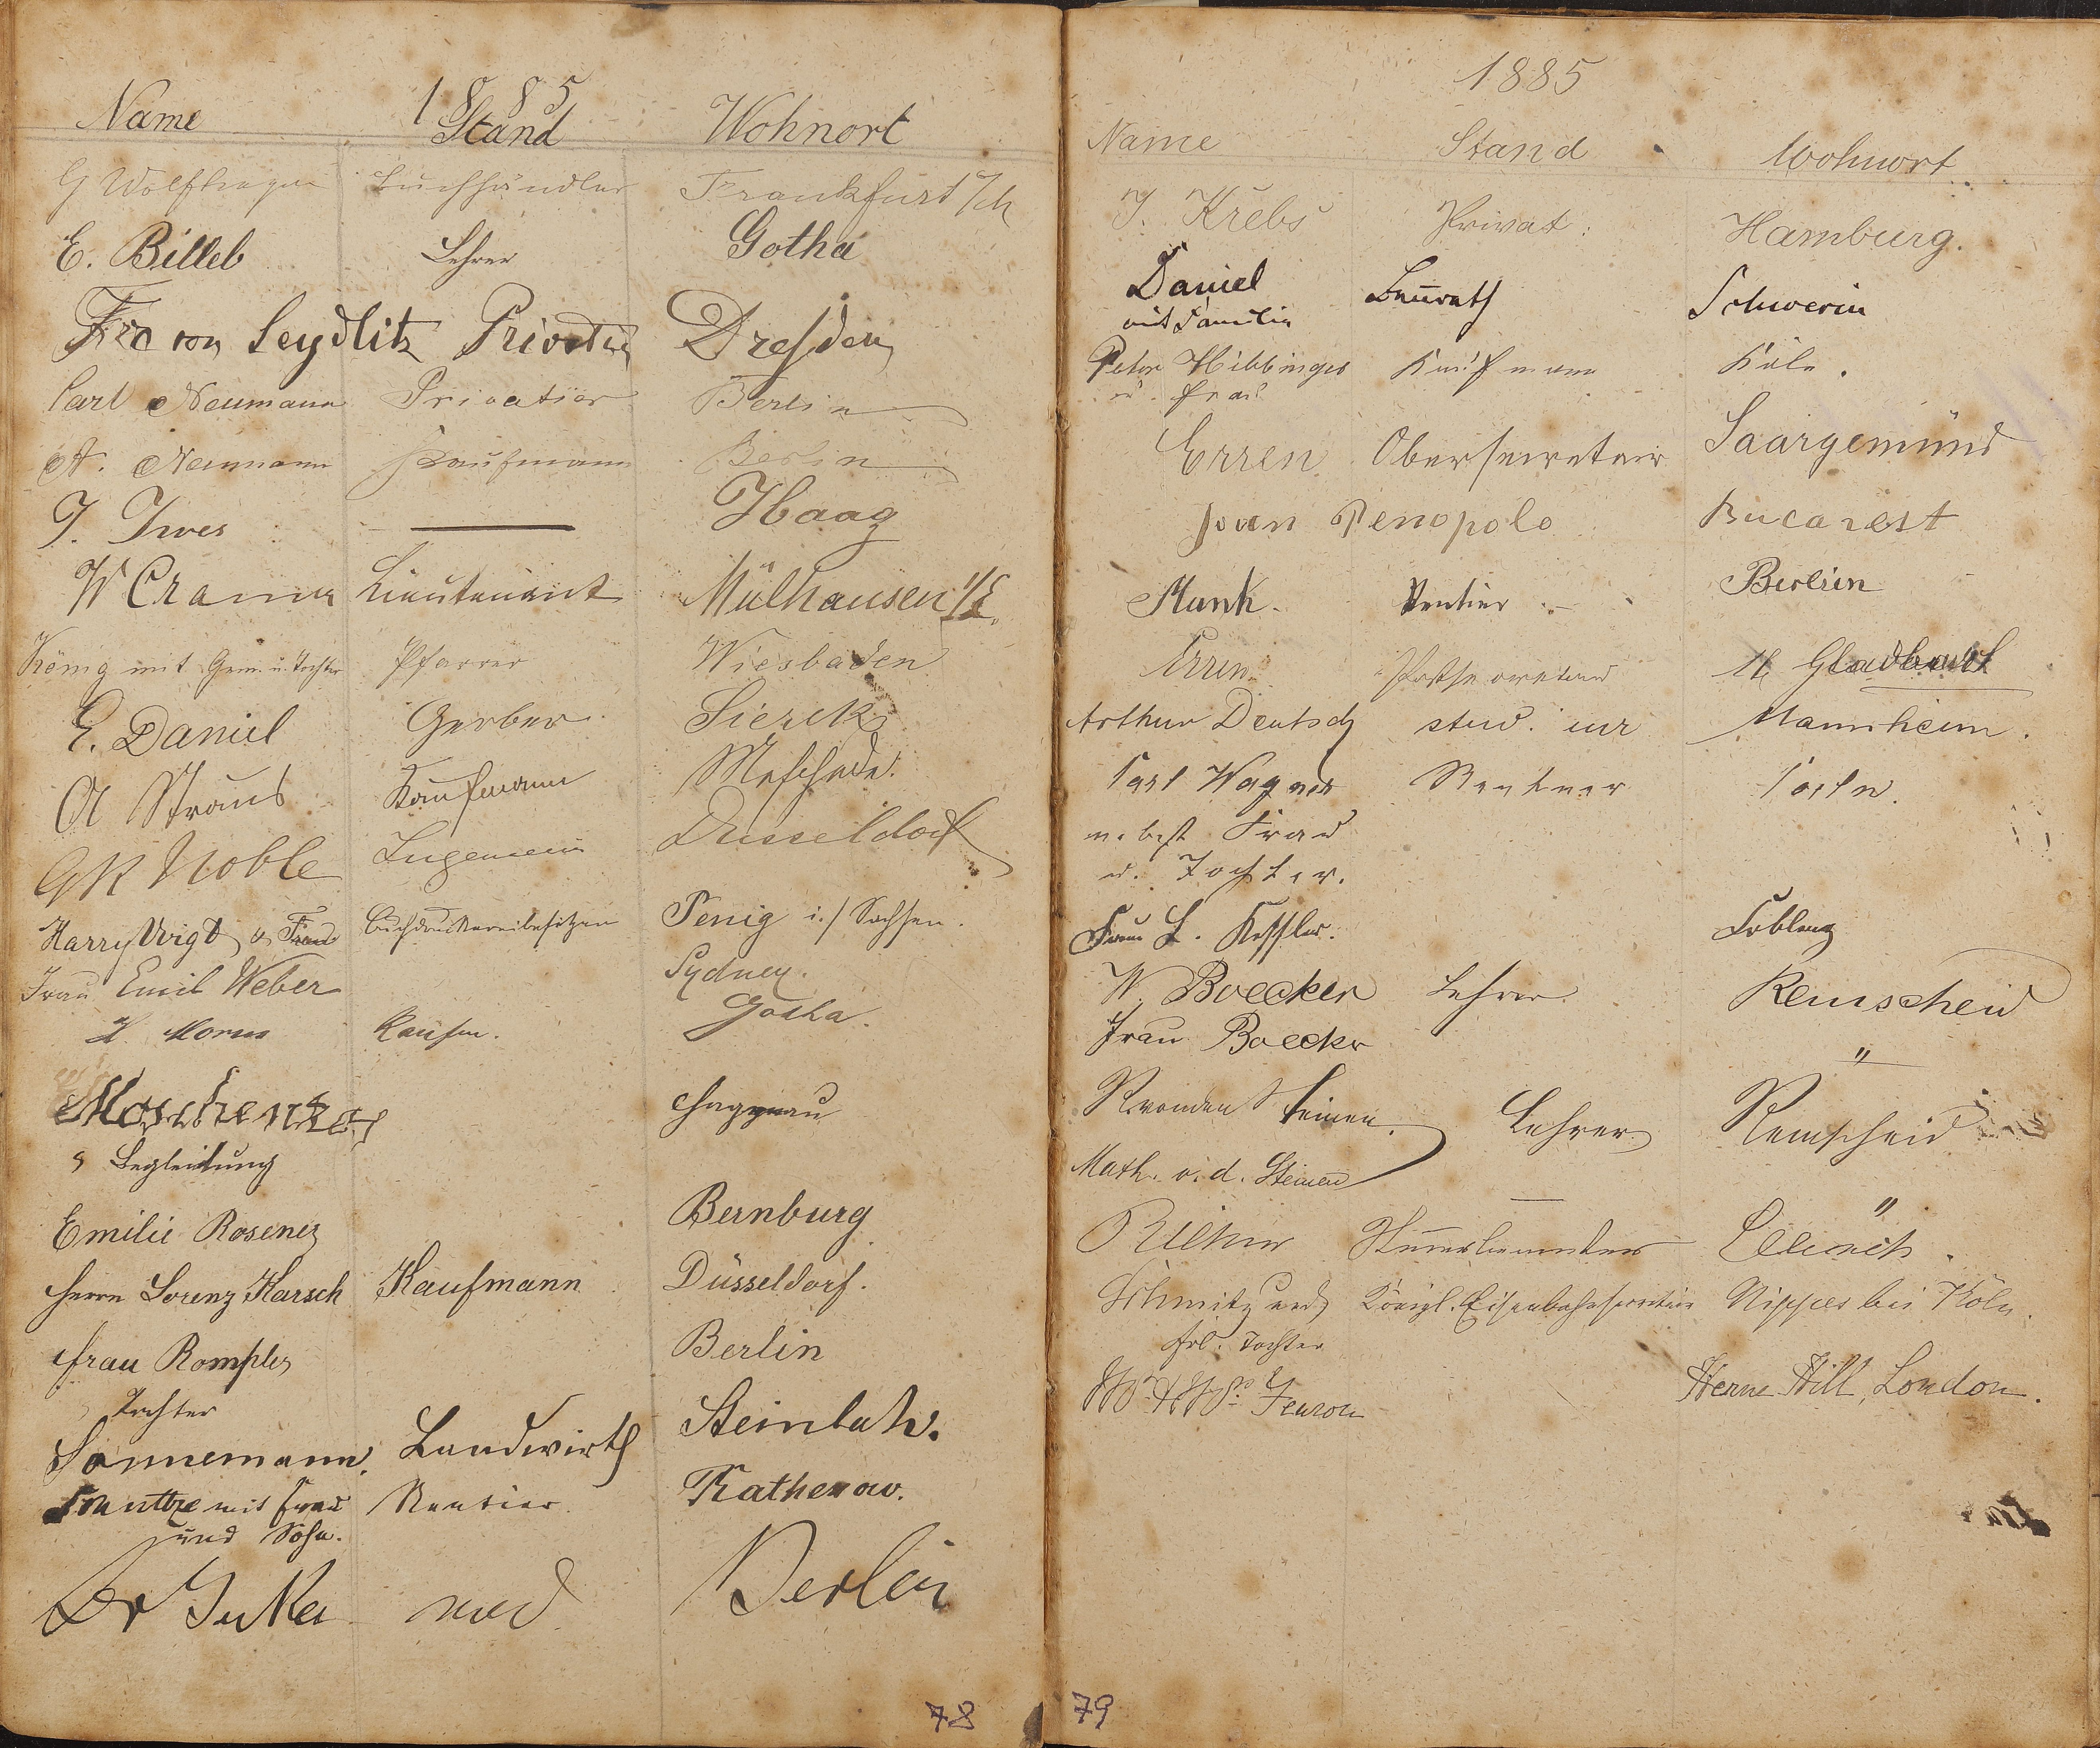 1885
Name Stand Wohnort
G Wolfhagen Buchhändler Frankfurt
E. Billeb Lehrer Gotha
von Seydlitz Dresden
Carl Neumann Privatier Berlin
A. Neumann Kaufmann Berlin
J. Haag
W Cramer Lieutenant Mülhausen i/E.
König mit Gem. u. Tochter Pfarrer Wiesbaden
E. Daniel Gerber Sierck
A Straus Kaufmann Meschede.
GR Noble Ingenieur Düsseldorf
Harry Voigt u Frau Buchdruckereibesitzer Penig i./Sachsen.
Frau Emil Weber Sydney.
H. Kaufm. Gotha.
Hagenau
Begleitung
Emilie Bernburg
Herrn Lorenz Karsch Kaufmann Düsseldorf.
Frau Rompler Berlin
Tochter
Sonnemann. Landwirth
mit Frau Rentier. Rathenow.
und Sohn.
Dr med Berlin
78
1885
Name Stand Wohnort
J. Krebs Privat. Hamburg.
Daniel Baurath Schwerin
mit Familie
Peter Kaufmann Köln.
u. Frau
Erren Obersecretair Saargemünd
Joan Penopolo Bucarest
Munk. Rentier Berlin
Erren Postsecretair M Gladbach
Arthur Deutsch stud. iur Mannheim.
Carl Wagner Rentner Coeln.
nebst Frau
u. Tochter.
Frau L. Kessler. Coblenz
W. Boecker Lehrer. Remscheid
Frau Boecker "
von den Steinen. Lehrer Remscheid
Math. v. d. Steinen — "
Steuerbeamter
Schmitz und Königl. Eisenbahnsecretair Nippes bei Köln.
frl. Tochter
Mr & Mrs Fearon Herne Hill, London.
79